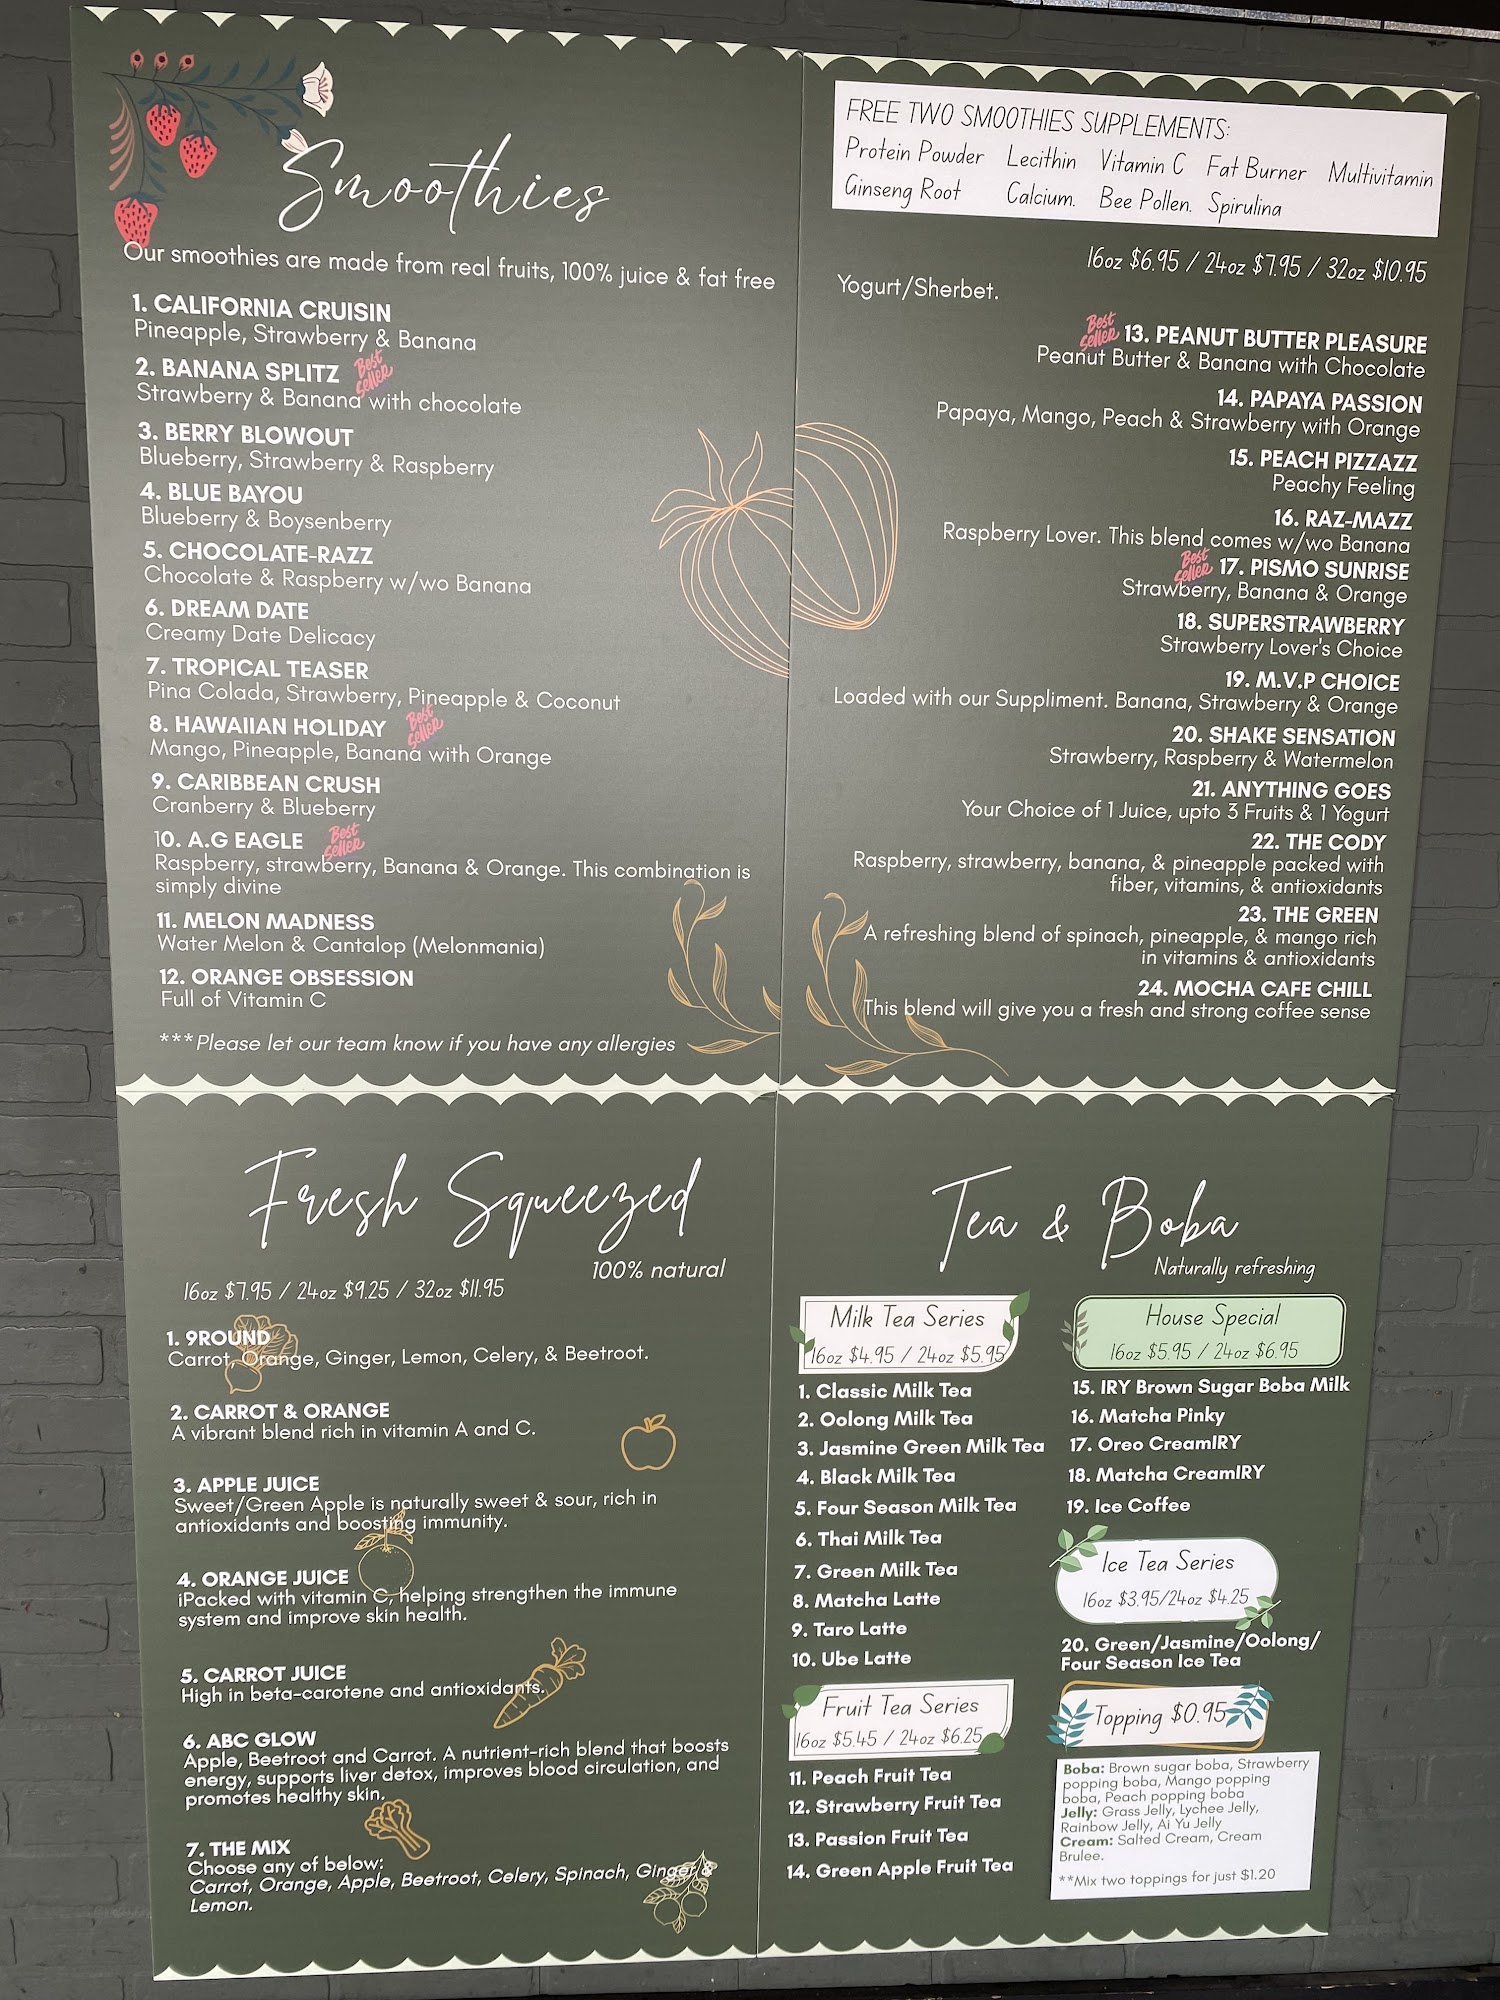 Smoothies
Our smoothies are made from real fruits, 100% juice & fat free
1. CALIFORNIA CRUISIN
Pineapple, Strawberry & Banana
2. BANANA SPLITZ Best Seller
Strawberry & Banana with chocolate
3. BERRY BLOWOUT
Blueberry, Strawberry & Raspberry
4. BLUE BAYOU
Blueberry & Boysenberry
5. CHOCOLATE-RAZZ
Chocolate & Raspberry w/wo Banana
6. DREAM DATE
Creamy Date Delicacy
7. TROPICAL TEASER
Pina Colada, Strawberry, Pineapple & Coconut
8. HAWAIIAN HOLIDAY Best Seller
Mango, Pineapple, Banana with Orange
9. CARIBBEAN CRUSH
Cranberry & Blueberry
10. A.G EAGLE Best Seller
Raspberry, strawberry, Banana & Orange. This combination is
simply divine
11. MELON MADNESS
Water Melon & Cantalop (Melonmania)
12. ORANGE OBSESSION
Full of Vitamin C
***Please let our team know if you have any allergies
FREE TWO SMOOTHIES SUPPLEMENTS:
Protein Powder Lecithin Vitamin C Fat Burner Multivitamin
Ginseng Root Calcium. Bee Pollen. Spirulina
16oz $6.95 / 24oz $7.95 / 32oz $10.95
Yogurt/Sherbet.
Best Seller 13. PEANUT BUTTER PLEASURE
Peanut Butter & Banana with Chocolate
14. PAPAYA PASSION
Papaya, Mango, Peach & Strawberry with Orange
15. PEACH PIZZAZZ
Peachy Feeling
16. RAZ-MAZZ
Raspberry Lover. This blend comes w/wo Banana
Best Seller 17. PISMO SUNRISE
Strawberry, Banana & Orange
18. SUPERSTRAWBERRY
Strawberry Lover's Choice
19. M.V.P CHOICE
Loaded with our Suppliment. Banana, Strawberry & Orange
20. SHAKE SENSATION
Strawberry, Raspberry & Watermelon
21. ANYTHING GOES
Your Choice of 1 Juice, upto 3 Fruits & 1 Yogurt
22. THE CODY
Raspberry, strawberry, banana, & pineapple packed with
fiber, vitamins, & antioxidants
23. THE GREEN
A refreshing blend of spinach, pineapple, & mango rich
in vitamins & antioxidants
24. MOCHA CAFE CHILL
This blend will give you a fresh and strong coffee sense
Fresh Squeezed
100% natural
16oz $7.95 / 24oz $9.25 / 32oz $11.95
1. 9ROUND
Carrot, Orange, Ginger, Lemon, Celery, & Beetroot.
2. CARROT & ORANGE
A vibrant blend rich in vitamin A and C.
3. APPLE JUICE
Sweet/Green Apple is naturally sweet & sour, rich in
antioxidants and boosting immunity.
4. ORANGE JUICE
iPacked with vitamin C, helping strengthen the immune
system and improve skin health.
5. CARROT JUICE
High in beta-carotene and antioxidants.
6. ABC GLOW
Apple, Beetroot and Carrot. A nutrient-rich blend that boosts
energy, supports liver detox, improves blood circulation, and
promotes healthy skin.
7. THE MIX
Choose any of below:
Carrot, Orange, Apple, Beetroot, Celery, Spinach, Ginger &
Lemon.
Tea & Boba
Naturally refreshing
Milk Tea Series
16oz $4.95 / 24oz $5.95
1. Classic Milk Tea
2. Oolong Milk Tea
3. Jasmine Green Milk Tea
4. Black Milk Tea
5. Four Season Milk Tea
6. Thai Milk Tea
7. Green Milk Tea
8. Matcha Latte
9. Taro Latte
10. Ube Latte
Fruit Tea Series
16oz $5.45 / 24oz $6.25
11. Peach Fruit Tea
12. Strawberry Fruit Tea
13. Passion Fruit Tea
14. Green Apple Fruit Tea
House Special
16oz $5.95 / 24oz $6.95
15. IRY Brown Sugar Boba Milk
16. Matcha Pinky
17. Oreo CreamIRY
18. Matcha CreamIRY
19. Ice Coffee
Ice Tea Series
16oz $3.95/24oz $4.25
20. Green/Jasmine/Oolong/
Four Season Ice Tea
Topping $0.95
Boba: Brown sugar boba, Strawberry
popping boba, Mango popping
boba, Peach popping boba
Jelly: Grass Jelly, Lychee Jelly,
Rainbow Jelly, Ai Yu Jelly
Cream: Salted Cream, Cream
Brulee.
**Mix two toppings for just $1.20